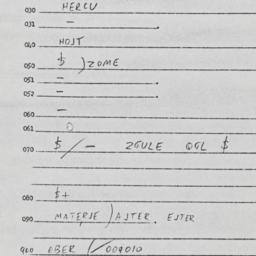 030 HERCU
031 –
040 HOJT
050 $ )ZOME
051 –
052 –
060 –
061
070 $/– ZGULE OGL $
080 $+
090 MATERJE )AJTER. EJTER
900 OBER (/009010